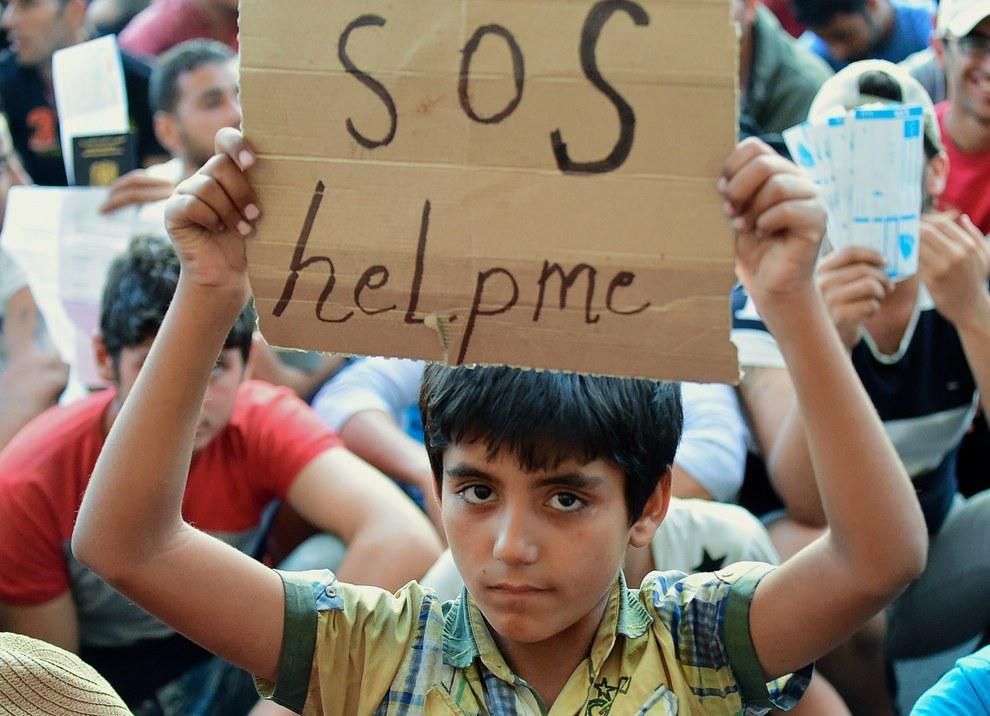 SOS
help me